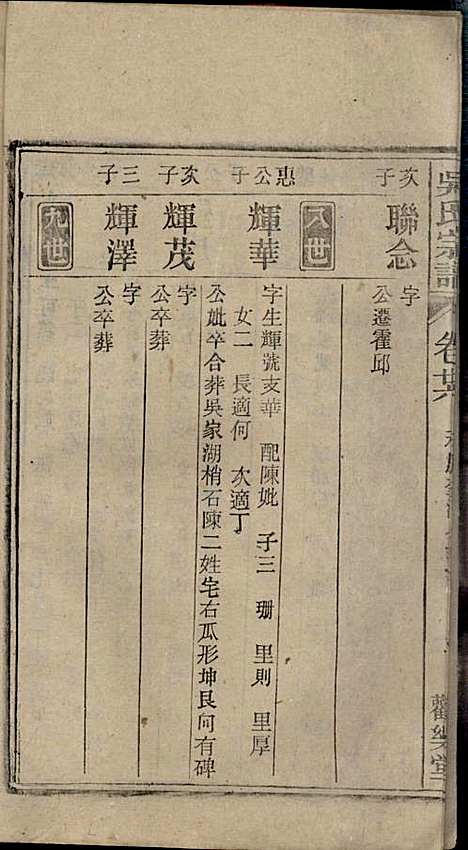 吳氏宗譜
卷廿六
次子
聯念
字
公遷霍邱
八世
惠公子
輝華
字生輝號支華　配陳妣　子三　珊　里則　里厚
女二　長適何　次適丁
公妣卒合葬吳家湖梢石陳二姓宅右瓜形坤艮向有碑
次子
輝茂
字
公卒葬
三子
輝澤
字
公卒葬
九世